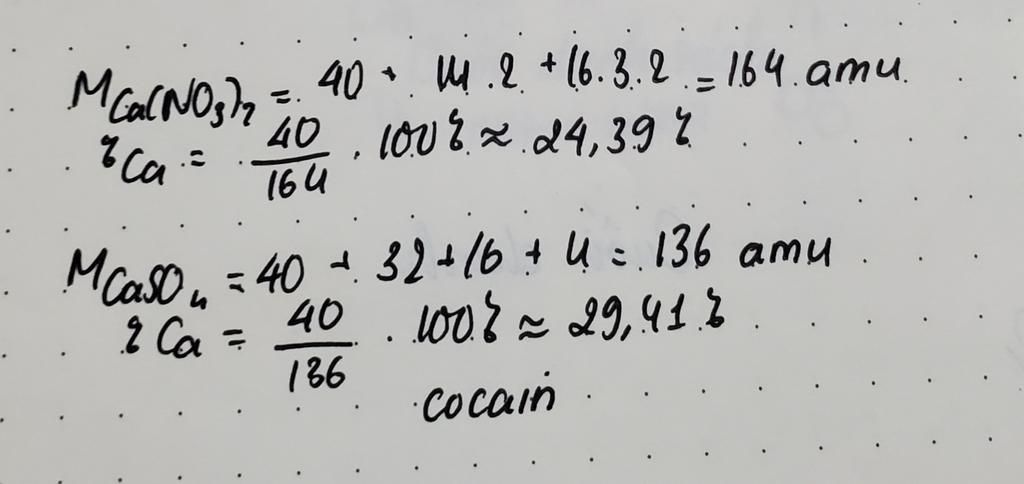 M Ca(NO3)2 = 40 + 14.2 + 16.3.2 = 164 amu
% Ca = 40/164 . 100% ≈ 24,39%
M CaSO4 = 40 + 32 + 16 + 4 = 136 amu
% Ca = 40/136 . 100% ≈ 29,41%
cocain